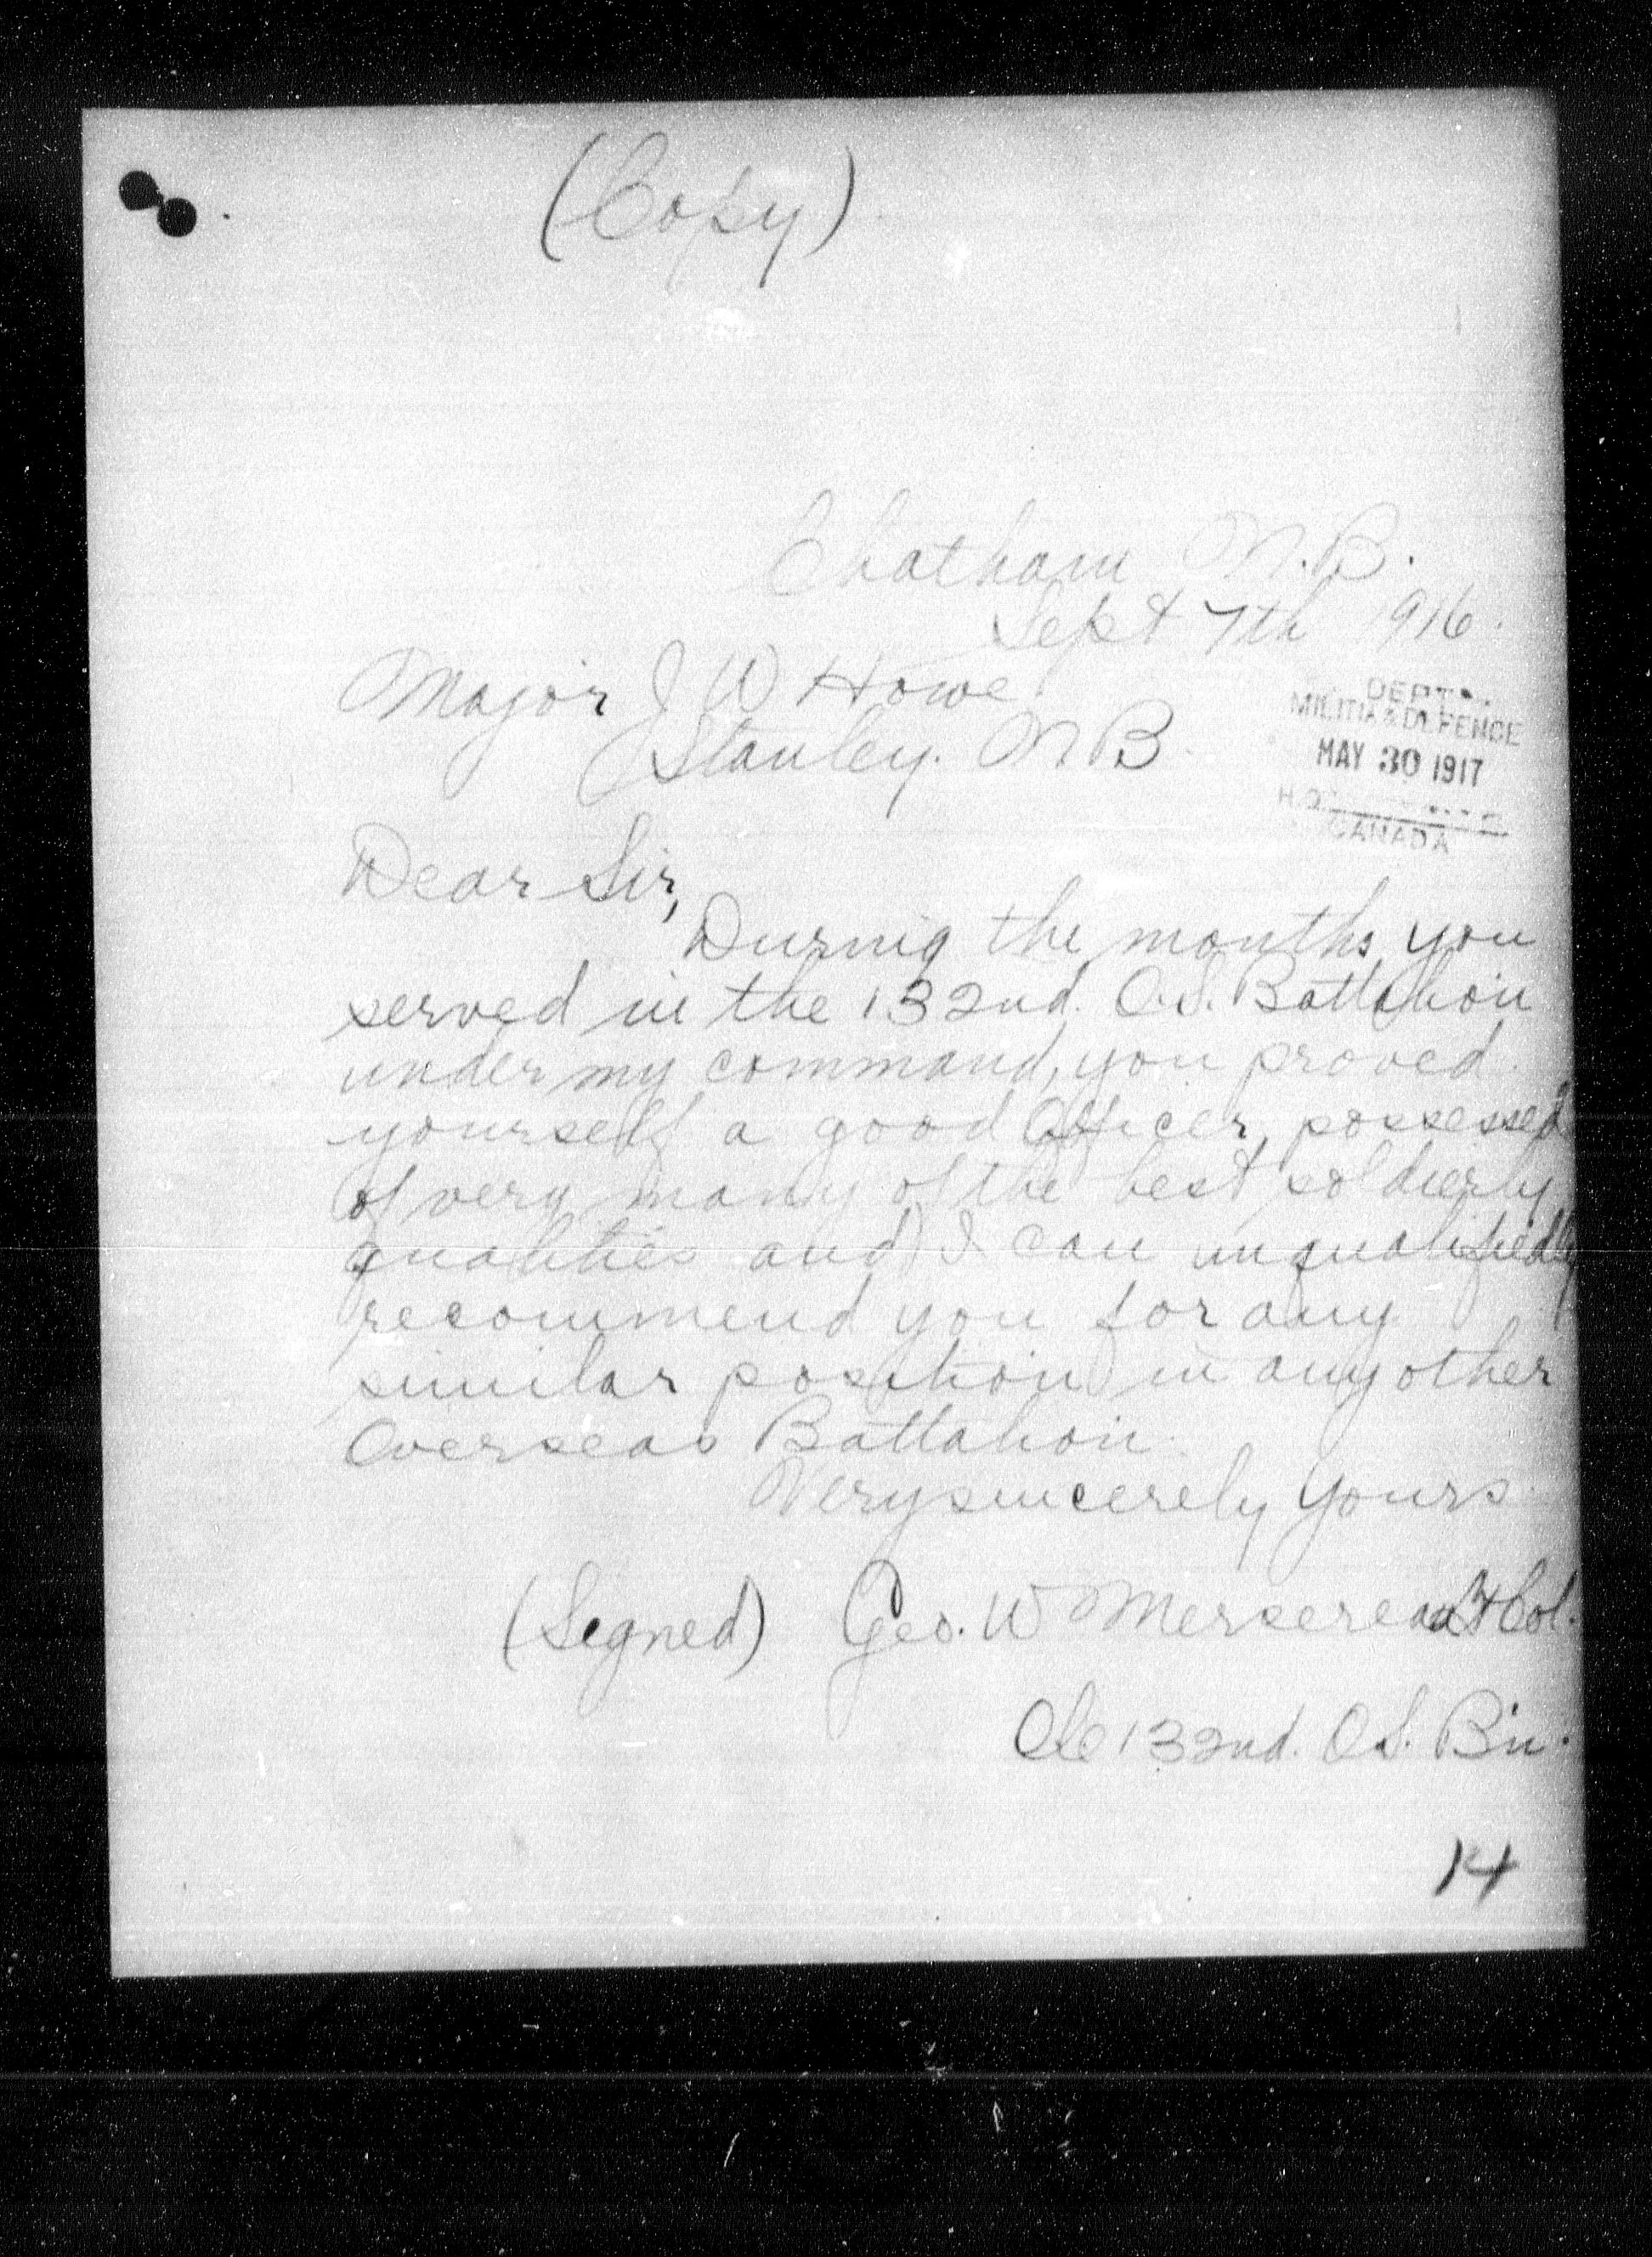 (Copy)
Chatham N.B.
Sept 7th 1916.
Major J W Howe
Stanley. N B.
DEPT.
MILITIA & DEFENCE
MAY 30 1917
H.Q.
CANADA
Dear Sir,
During the months you
served in the 132nd. O.S. Battalion
under my command, you proved
yourself a good Officer, possessed
of very many of the best soldierly
qualities and I can unqualifiedly
recommend you for any
similar position in any other
Overseas Battalion.
Very sincerely Yours
(Signed) Geo. W Mersereau Lt Col.
OC 132nd. O.S. Bn.
14